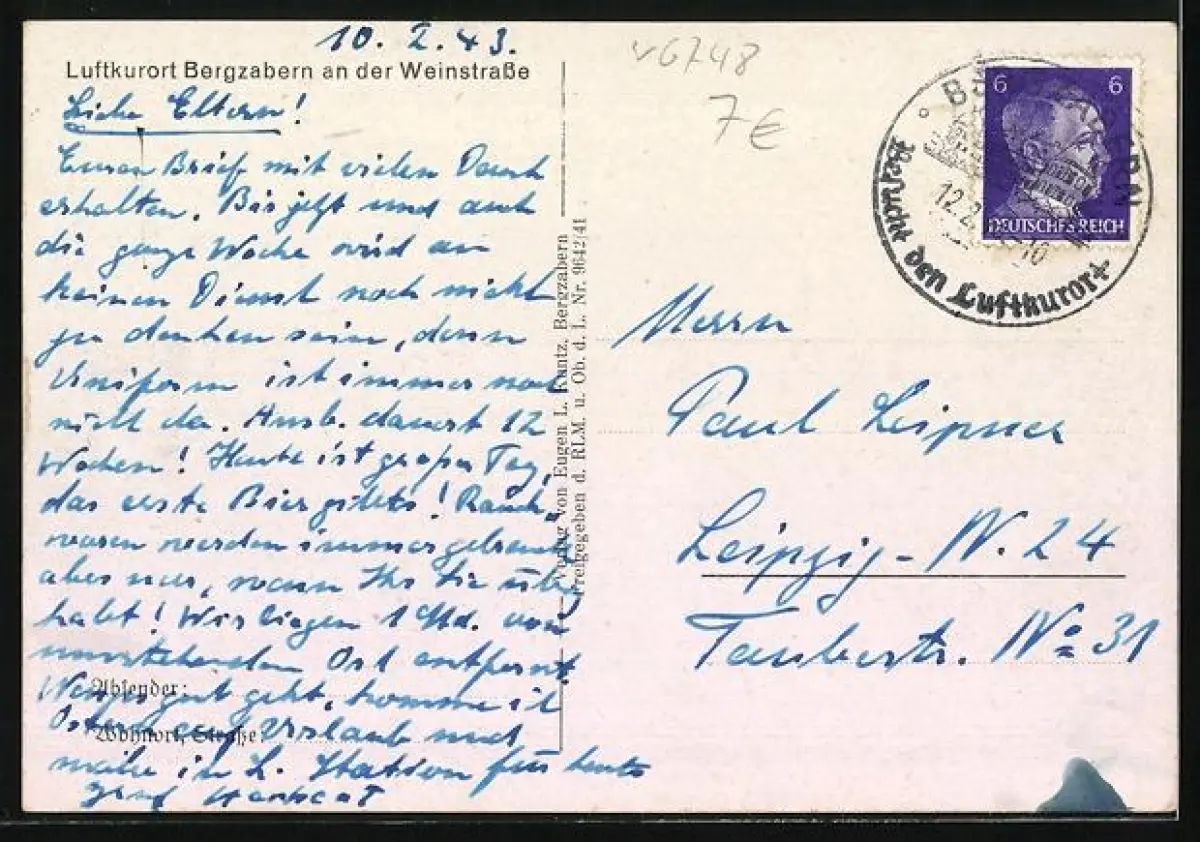 10. 2. 43.
Luftkurort Bergzabern an der Weinstraße
Liebe Eltern!
Euren Brief mit vielen Dank
erhalten. Bis jetzt und auch
die ganze Woche wird an
keinen Dienst noch nicht
zu denken sein, denn
Uniform ist immer noch
nicht da. Ausb. dauert 12
Wochen! Heute ist großer Tag,
das erste Bier gibts! Rauch-
waren werden immer gebraucht
aber nur, wenn Ihr sie übrig
habt! Wir liegen 1 Std. von
umstehenden Ort entfernt.
Wenns gut geht, komme ich
Absender:
Ostern auf Urlaub und
Wohnort, Straße:
in L. Station für heute
Verlag von Eugen L. Kuntz, Bergzabern
Freigegeben d. RLM. u. Ob. d. L. Nr. 9642/41
v6748
7€
6 6
DEUTSCHES REICH
BERGZABERN
12.2.
Besucht den Luftkurort
Herrn
Paul Leipner
Leipzig-N. 24
Taubestr. No 31